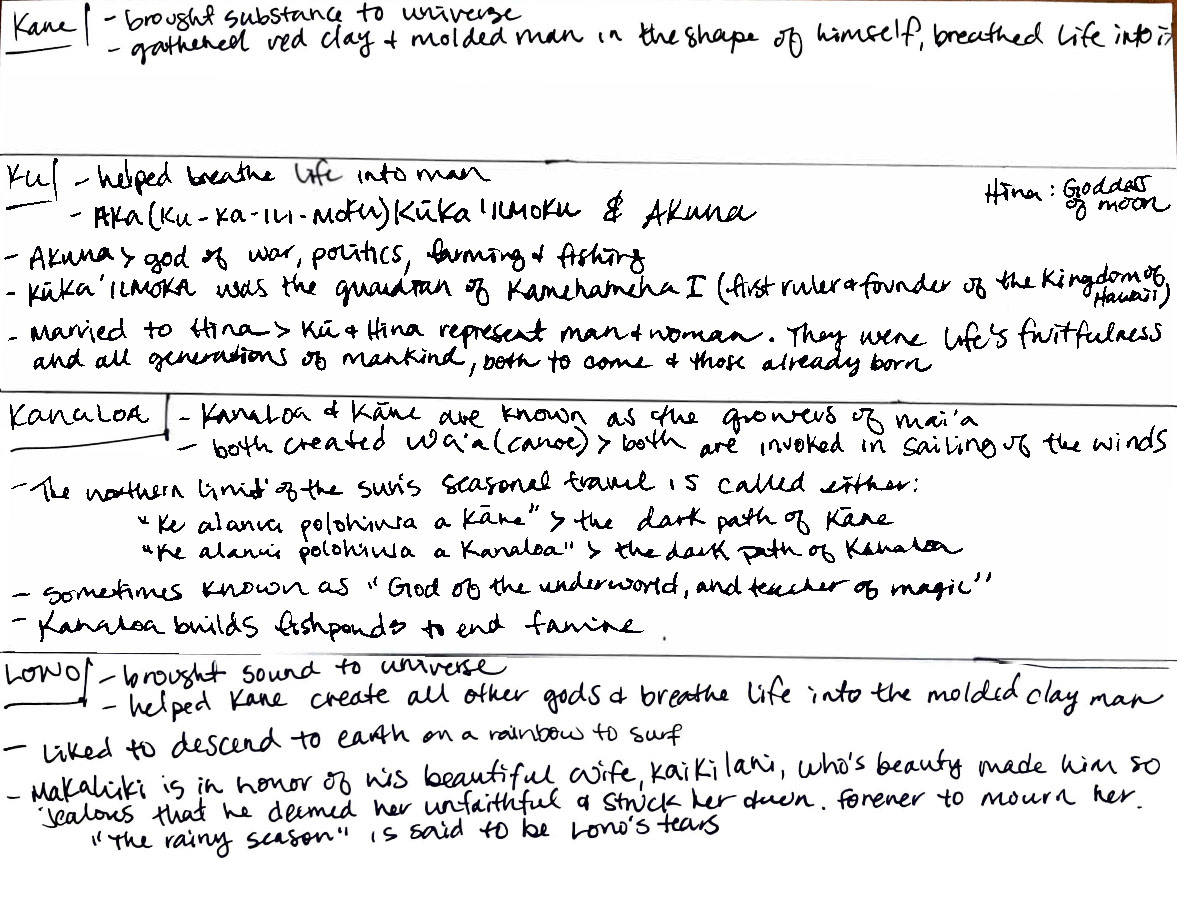 Kane - brought substance to universe
- gathered red clay & molded man in the shape of himself, breathed life into it
Ku - helped breathe life into man
Hina : Goddess of moon
- AKA (Ku-ka-ili-moku) Kūka'ilimoku & Akuna
- Akuna > god of war, politics, farming & fishing
- Kūka'ilimoka was the guardian of Kamehameha I (first ruler & founder of the Kingdom of Hawaii)
- Married to Hina > Kū & Hina represent man & woman. They were life's fruitfulness
and all generations of mankind, both to come & those already born
Kanaloa - Kanaloa & Kāne are known as the growers of mai'a
- both created wa'a (canoe) > both are invoked in sailing of the winds
- The northern limit of the sun's seasonal travel is called either:
"Ke alanui polohiwa a Kāne" > the dark path of Kāne
"Ke alanui polohiwa a Kanaloa" > the dark path of Kanaloa
- sometimes known as "God of the underworld, and teacher of magic"
- Kanaloa builds fishponds to end famine.
Lono - brought sound to universe
- helped Kane create all other gods & breathe life into the molded clay man
- Liked to descend to earth on a rainbow to surf
- Makahiki is in honor of his beautiful wife, Kaikilani, who's beauty made him so
jealous that he deemed her unfaithful & struck her down. forever to mourn her.
"The rainy season" is said to be Lono's tears